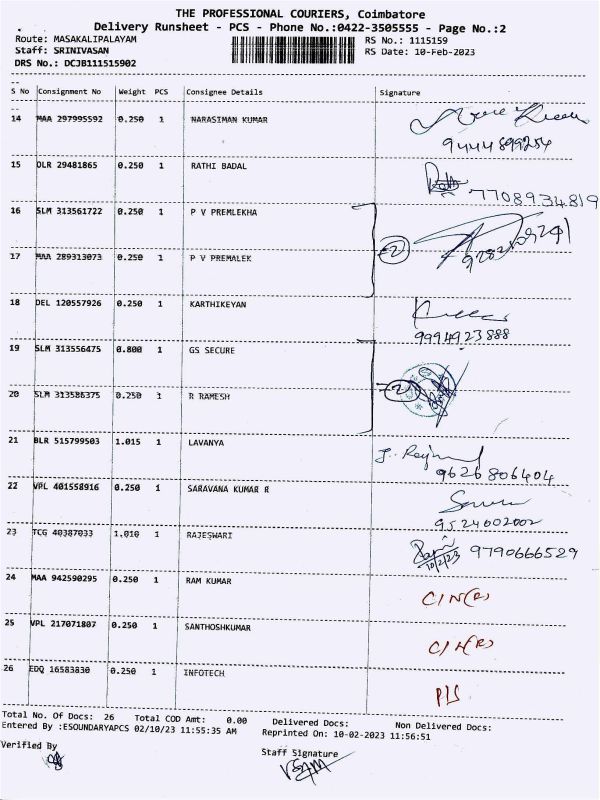 THE PROFESSIONAL COURIERS, Coimbatore
Delivery Runsheet - PCS - Phone No.:0422-3505555 - Page No.:2
Route: MASAKALIPALAYAM RS No.: 1115159
Staff: SRINIVASAN RS Date: 10-Feb-2023
DRS No.: DCJB111515902
S No Consignment No Weight PCS Consignee Details Signature
14 MAA 297995592 0.250 1 NARASIMAN KUMAR
9444899254
15 DLR 29481865 0.250 1 RATHI BADAL
7708934819
16 SLM 313561722 0.250 1 P V PREMLEKHA
2
17 MAA 289313073 0.250 1 P V PREMALEK
18 DEL 120557926 0.250 1 KARTHIKEYAN
9994923888
19 SLM 313556475 0.800 1 GS SECURE
2
20 SLM 313586375 0.250 1 R RAMESH
21 BLR 515799503 1.015 1 LAVANYA
9626806404
22 VPL 401558916 0.250 1 SARAVANA KUMAR R
9524002002
23 TCG 40387033 1.010 1 RAJESWARI
10/2/23 9790666529
24 MAA 942590295 0.250 1 RAM KUMAR
C/N(R)
25 VPL 217071807 0.250 1 SANTHOSHKUMAR
C/N(R)
26 EDQ 16583830 0.250 1 INFOTECH
P/S
Total No. Of Docs: 26 Total COD Amt: 0.00 Delivered Docs: Non Delivered Docs:
Entered By :ESOUNDARYAPCS 02/10/23 11:55:35 AM Reprinted On: 10-02-2023 11:56:51
Verified By Staff Signature